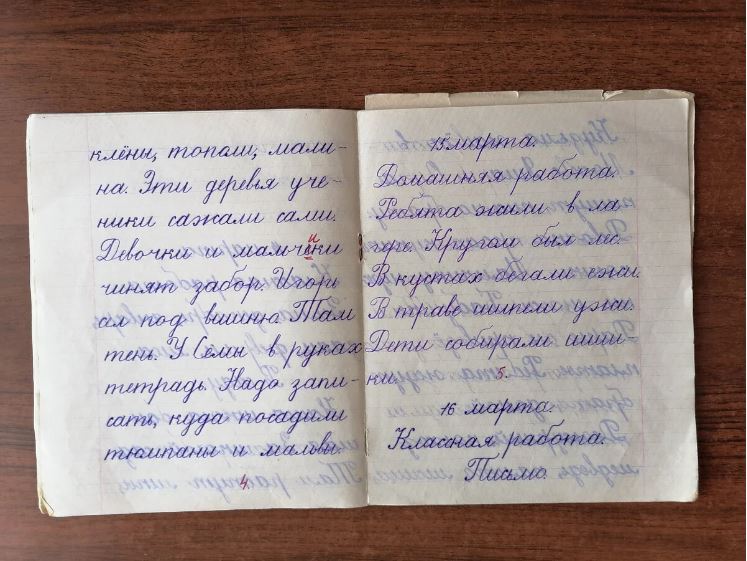 клёны, тополи, мали-
на. Эти деревья уче-
ники сажали сами.
Девочки и мальчики
чинят забор. Игорь
ал под вишню. Там
тень. У Семы в руках
тетрадь. Надо запи-
сать, куда посадили
тюльпаны и мальвы.
4.
15 марта.
Домашняя работа.
Ребята жили в ла-
гере. Кругом был лес.
В кустах бегали ежи.
В траве шипели ужи.
Дети собирали шиш-
ки. 5.
16 марта.
Классная работа.
Письмо.